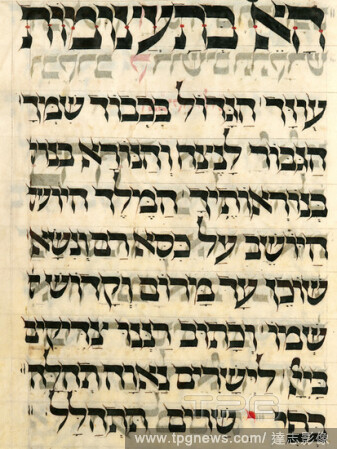 האל בתעצומות
עוזך הגדול בכבוד שמך
הגבור לנצח והנורא בנור
בנוראותיך המלך היוש
היושב על כסא רם ונשא
שוכן עד מרום וקדוש
שמו וכתוב רננו צדיקים
לישרים נאוה תהלה
בפי ישרים תתהלל
TPG
www.tpgnews.com / 達志影像